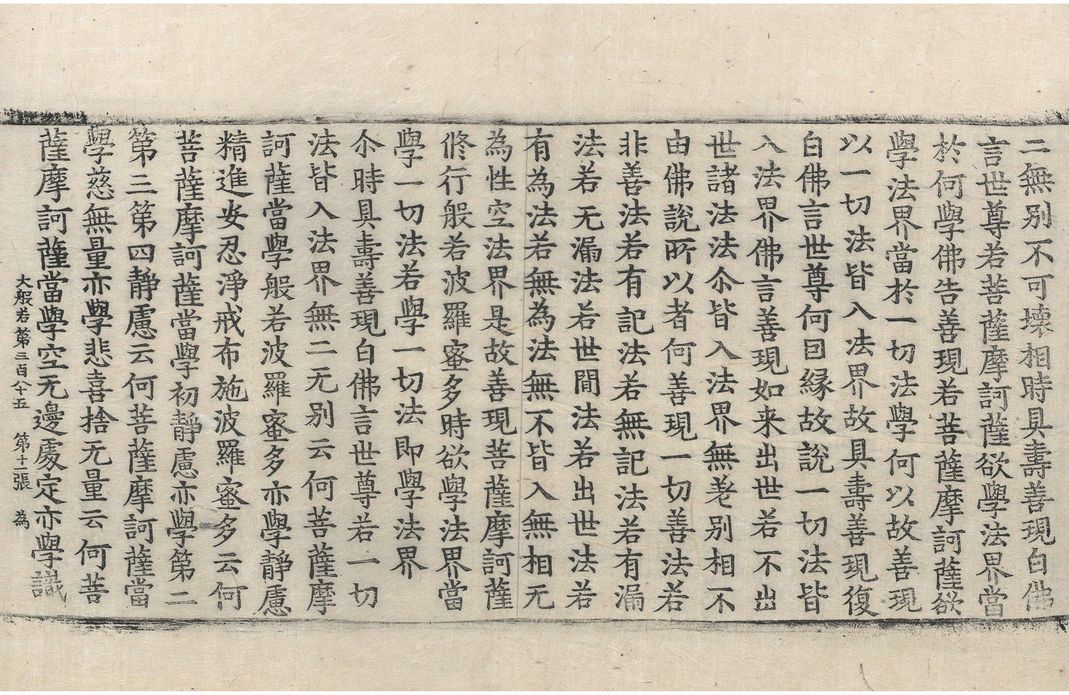 二無別不可壞相時具壽善現白佛
言世尊若菩薩摩訶薩欲學法界當
於何學佛告善現若菩薩摩訶薩欲
學法界當於一切法學何以故善現
以一切法皆入法界故具壽善現復
白佛言世尊何因緣故說一切法皆
入法界佛言善現如来出世若不出
世諸法法尒皆入法界無差別相不
由佛說所以者何善現一切善法若
非善法若有記法若無記法若有漏
法若无漏法若世間法若出世法若
有為法若無為法無不皆入無相无
為性空法界是故善現菩薩摩訶薩
修行般若波羅蜜多時欲學法界當
學一切法若學一切法即學法界
尒時具壽善現白佛言世尊若一切
法皆入法界無二无別云何菩薩摩
訶薩當學般若波羅蜜多亦學靜慮
精進安忍淨戒布施波羅蜜多云何
菩薩摩訶薩當學初靜慮亦學第二
第三第四靜慮云何菩薩摩訶薩當
學慈無量亦學悲喜捨无量云何菩
薩摩訶薩當學空无邊處定亦學識
大般若第三百八十五 第十二張 為